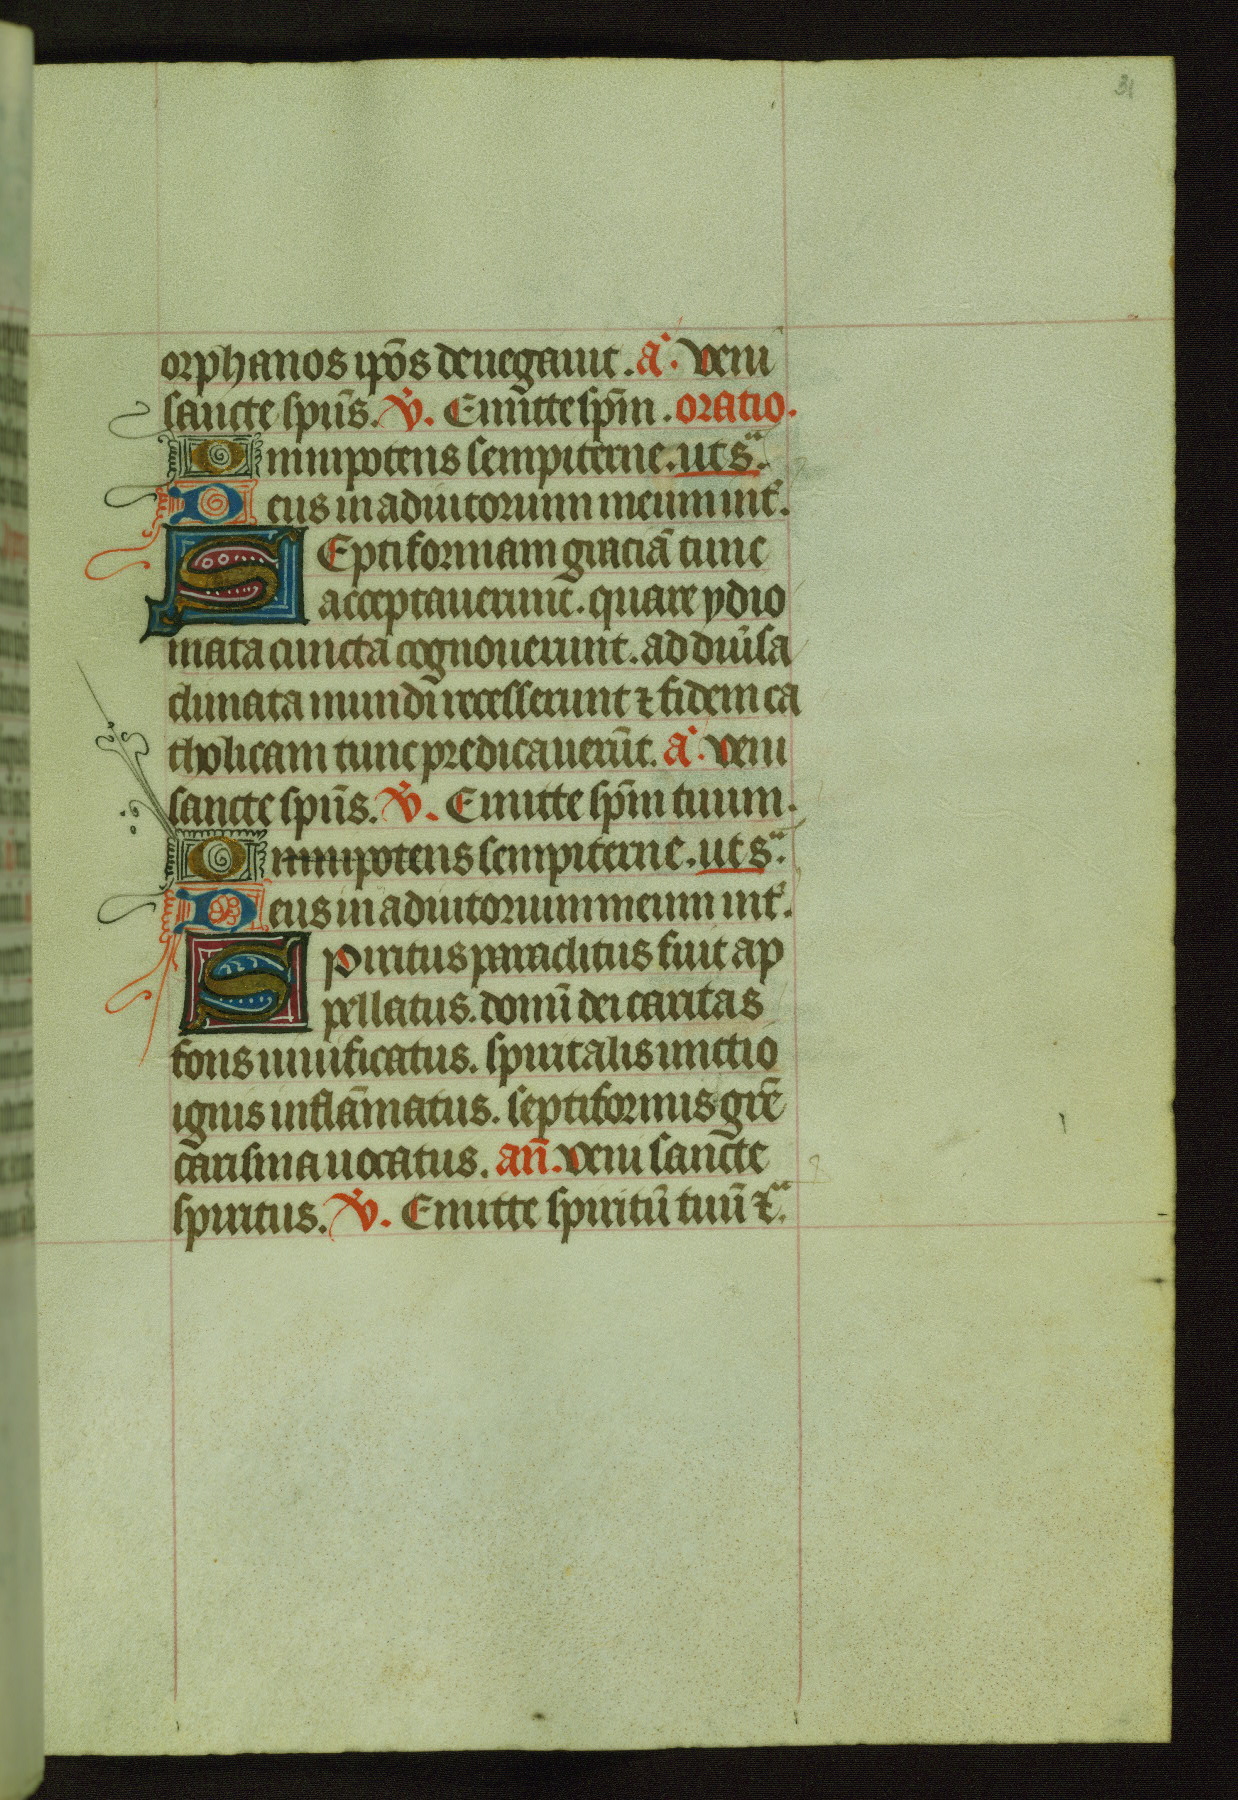 31
orphanos ip̄os denegauit. a͛. Veni
sancte spūs. v̇. Emitte sp̄m. oratio.
Omnipotens sempiterne. ut sᵃ.
Deus in adiutorium meum int̄.
Septiformam graciā tunc
acceptauerunt. quare ydio
mata cuncta cognouerunt. ad diũsa
climata mundi recesserunt ⁊ fidem ca
tholicam tunc predicauerūt. a͛. Veni
sancte spūs. v̇. Emitte sp̄m tuum.
Omnipotens sempiterne. ut sᵃ.
Deus in adiutorium meum int̄.
Spiritus paraclitus fuit ap
pellatus. donū dei caritas
fons uiuificatus. spiritalis unctio
ignis inflāmatus. septiformis grē
carisma uocatus. an̄. Veni sancte
spiritus. v̇. Emitte spiritū tuū ⁊ᵃ.